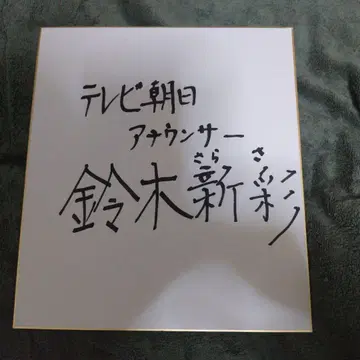 テレビ朝日
アナウンサー
さらさ
鈴木新彩